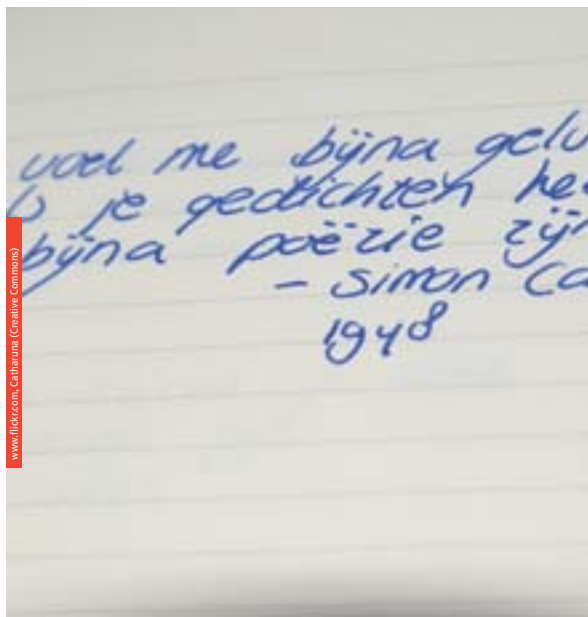 voel me bijna gelu
je gedichten he
bijna poëzie zijn
- Simon Ca
1948
www.flickr.com, Catharuna (Creative Commons)